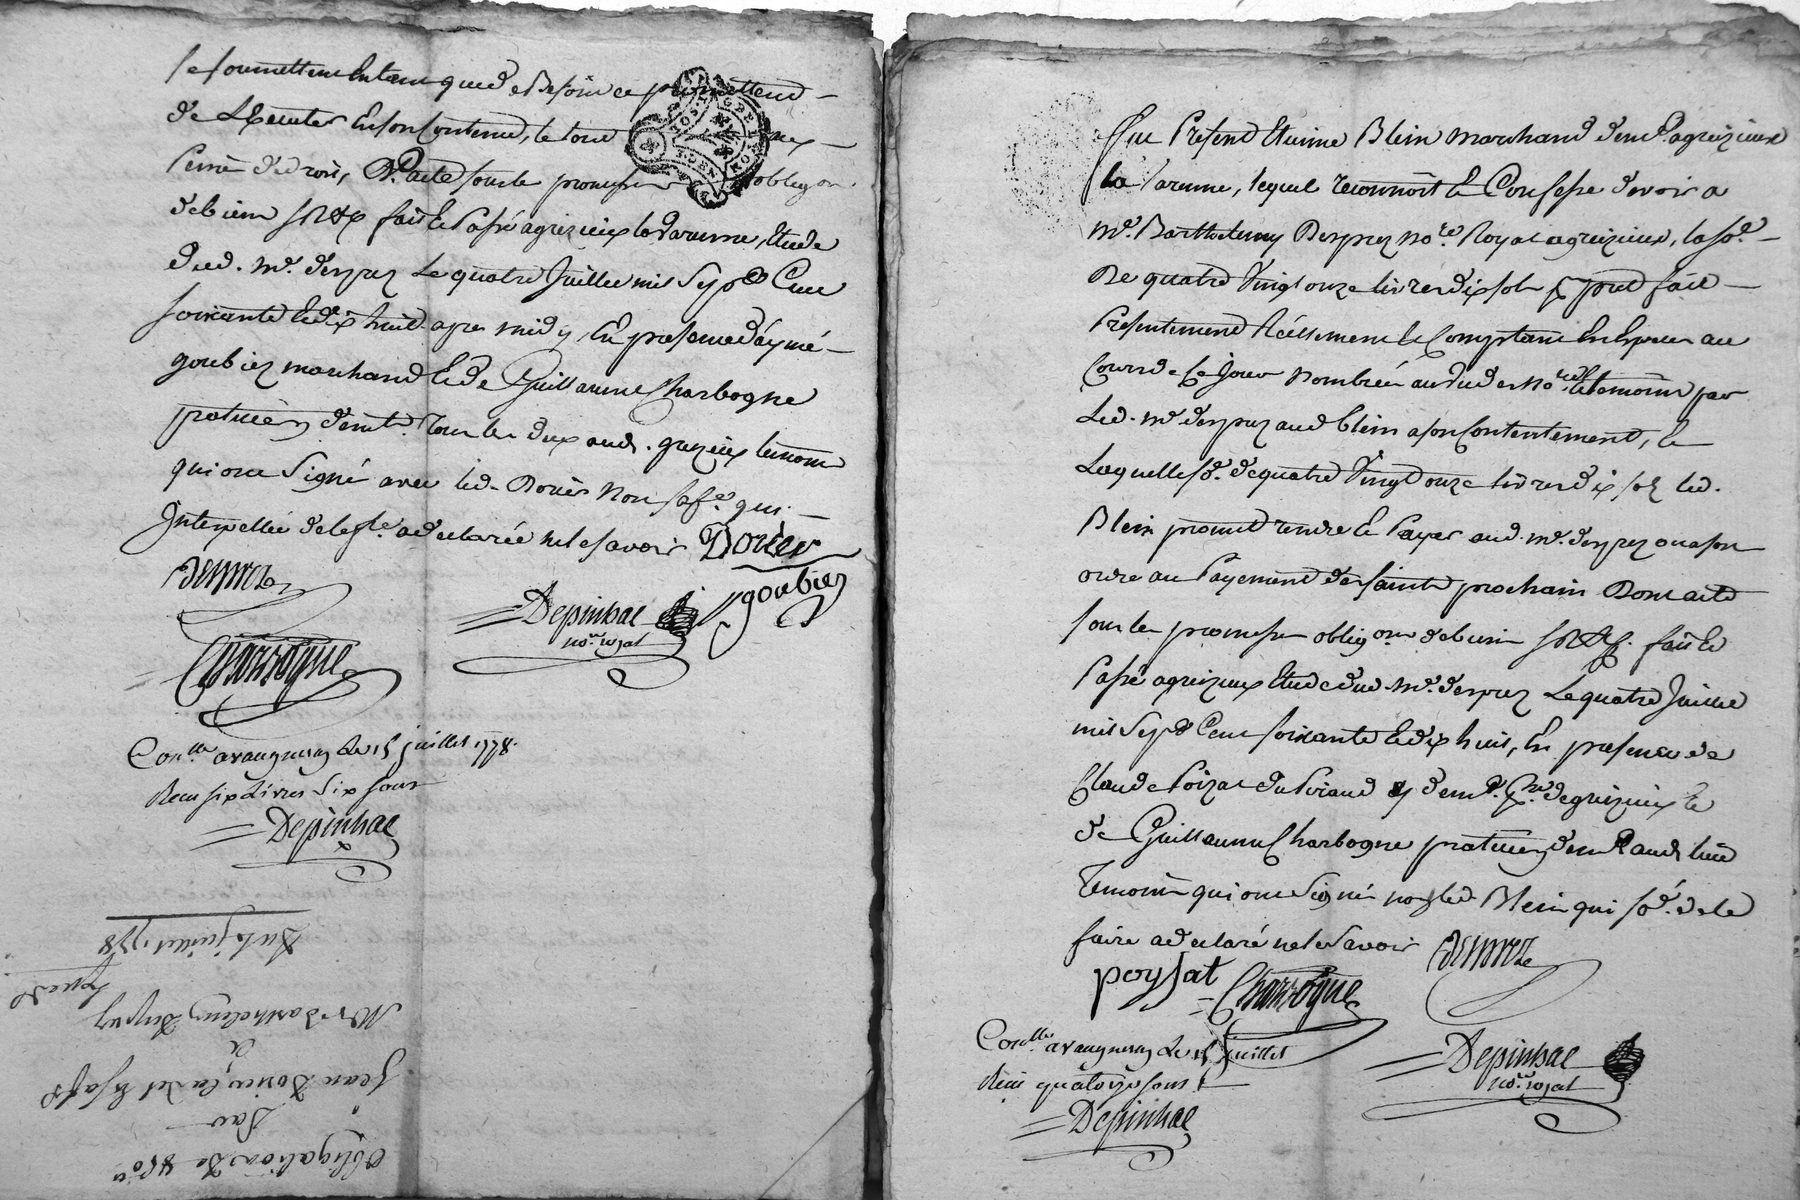 se soumettent en tant que d. et besoin ce promettend
de L'executer en son contenu, le tout
Peine de droit, D. acte sous le promesses obligon.
de biens fait et Passé a grezieux la varenne, Etude
dud. Me. desprez Le quatre Juillet mil Sept Cent
soixante et dix huit apres midy, En presence d'aymé
goubiez marchand et de Guillaume Charbogne
praticien demt. Tous les deux aud. grezieux temoins
qui ont Signé avec led. Doriés Non sa fe. qui
Interpellée de le fe. a declarée ne le savoir Doriés
desprez
goubiez
Depinhac
nore. royal
Charbogne
Conlle. a vaugneray Le 15 juillet 1778.
Recu six Livres Six sous
Depinhac
Du 4 juillet 1778
Mr. Barthelemy Desprez
a
Jean Doriés
Par
Obligation De
Fut Present Etienne Blein marchand demt. a grezieux
la Varenne, lequel reconnoit et Confesse devoir a
Me. Barthelemy Desprez nore. Royal a grezieux, la so.e
De quatre Vingt onze livres dix sols pret fait
Presentement Réellement et Comptant En Especes au
Cours de Ce Jour Nombrée au vû des nores. et temoins par
Led. Me. desprez aud Blein a son Contentement, le
Laquelle so.e de quatre Vingt onze livres dix sols led.
Blein promet rendre et Payer aud. Me. desprez ou a son
ordre au Payement des saints prochain Dont acte
sous les promesses obligons de biens fait et
Passé a grezieux Etude dud. Me. desprez Le quatre Juillet
mil Sept Cent soixante et dix huit, En presence de
Claude Poizat demt. de grezieux et
de Guillaume Charbogne praticien demt. aud. lieu
Temoins qui ont Signé non led Blein qui so.é de le
faire a declaré ne le Savoir desprez
poysat
Charbogne
Conlle. a vaugneray Le 15 Juillet
Recu quatorze sous
Depinhac
Depinhac
nore. royal